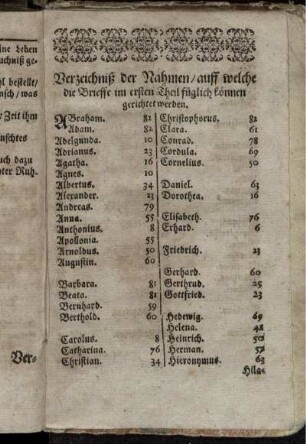 ine Leben
achniß ge-
hl bestellt/
nsch/ was
Zeit ihm
nschtes
uch dazu
ter Ruh-
Ver-
Verzeichniß der Nahmen/ auff welche
die Brieffe im ersten Theil füglich können
gerichtet werden.
ABraham. 81
Adam. 82
Adelgunda. 10
Adrianus. 23
Agatha. 16
Agnes. 10
Albertus. 34
Alexander. 23
Andreas. 79
Anna. 55
Anthonius. 8
Apollonia. 55
Arnoldus. 50
Augustin. 60
Barbara. 81
Beata. 81
Bernhard. 59
Berthold. 60
Carolus. 8
Catharina. 76
Christian. 34
Christophorus. 82
Clara. 61
Conrad. 78
Cordula. 69
Cornelius. 50
Daniel. 63
Dorothea. 16
Elisabeth. 76
Erhard. 6
Friedrich. 23
Gerhard. 60
Gerthrud. 25
Gottfried. 23
Hedewig. 69
Helena. 48
Heinrich. 50
Herman.
Hieronymus. 63
Hila-